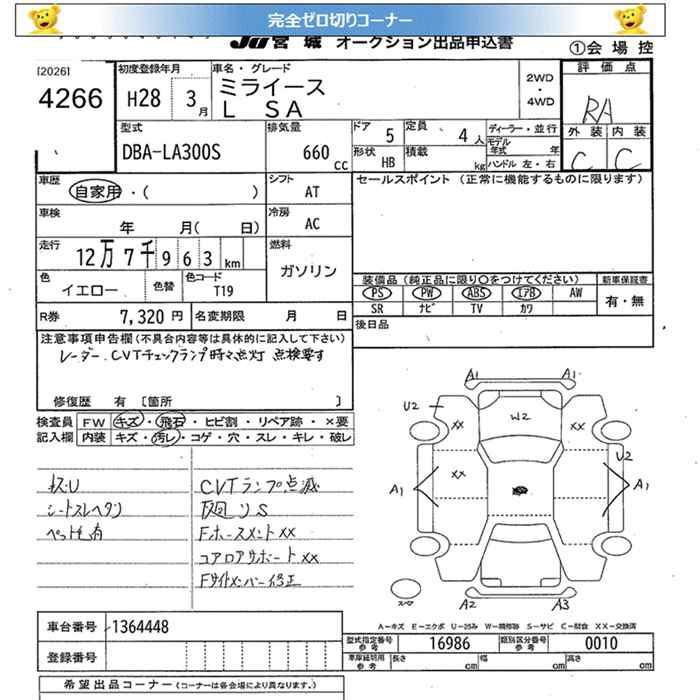 完全ゼロ切りコーナー
JU宮城 オークション出品申込書
①会場控
[2026]
4266
初度登録年月
H28 3月
車名・グレード
ミライース
L SA
2WD・4WD
評価点
RA
外装 内装
C C
型式
DBA-LA300S
排気量
660 cc
ドア 5
定員 4人
ディーラー・並行
モデル年式 年
形状 HB
積載 kg
ハンドル 左・右
車歴
自家用・( )
シフト AT
セールスポイント (正常に機能するものに限ります)
車検
年 月( 日)
冷房 AC
走行
12万7千963km
燃料
ガソリン
色
イエロー
色替
色コード
T19
装備品(純正品に限り○をつけてください)
新車保証書
PS PW ABS エアB AW
有・無
SR ナビ TV カワ
R券 7,320円
名変期限 月 日
後日品
注意事項申告欄(不具合内容等は具体的に記入して下さい)
レーダー、CVTチェックランプ時々点灯 点検要す
修復歴 有 〔箇所 〕
検査員記入欄
FW キズ・飛石・ヒビ割・リペア跡・×要
内装 キズ・汚レ・コゲ・穴・スレ・キレ・破レ
CVTランプ点滅
シートスレヘタリ
廻リS
ペット毛有
Fホースメント XX
コアロアサポート XX
Fサイドメンバー修正
A1 A1
U2
W2
XX XX
XX
U2
A1 A1
A2 A3
スペア
A-キズ E-エクボ U-凹み W-補修跡 S-サビ C-腐食 XX-交換済
車台番号 1364448
登録番号
型式指定番号 参考 16986
類別区分番号 参考 0010
車庫証明用 参考
長さ cm 幅 cm 高さ cm
希望出品コーナー(コーナーは各会場により異なります。)